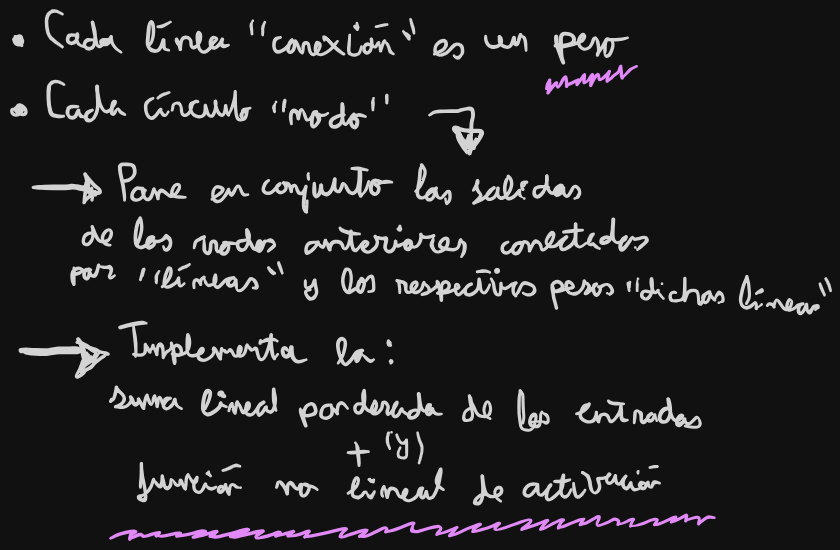 • Cada línea "conexión" es un peso
• Cada círculo "nodo"
→ Pone en conjunto las salidas
de los nodos anteriores conectados
por "líneas" y los respectivos pesos "dichas líneas"
→ Implementa la:
suma lineal ponderada de las entradas
+ (y)
función no lineal de activación